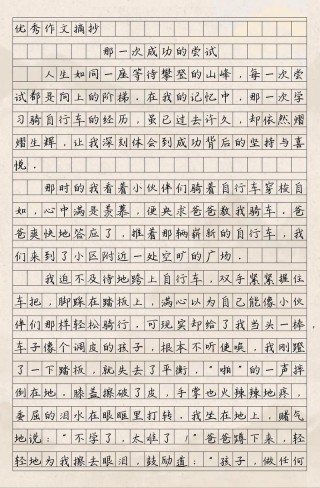 优秀作文摘抄
那一次成功的尝试
人生如同一座等待攀登的山峰，每一次尝
试都是向上的阶梯。在我的记忆中，那一次学
习骑自行车的经历，虽已过去许久，却依然熠
熠生辉，让我深刻体会到成功背后的坚持与喜
悦。
那时的我看着小伙伴们骑着自行车穿梭自
如，心中满是羡慕，便央求爸爸教我骑车。爸
爸爽快地答应了，推着那辆崭新的自行车，我
们来到了小区附近一处空旷的广场。
我迫不及待地跨上自行车，双手紧紧握住
车把，脚踩在踏板上，满心以为自己能像小伙
伴们那样轻松骑行，可现实却给了我当头一棒，
车子像个调皮的孩子，根本不听使唤，我刚蹬
了一下踏板，就失去了平衡，“啪”的一声摔
倒在地，膝盖擦破了皮，手掌也火辣辣地疼，
委屈的泪水在眼眶里打转。我坐在地上，赌气
地说：“不学了，太难了！”爸爸蹲下来，轻
轻地为我擦去眼泪，鼓励道：“孩子，做任何